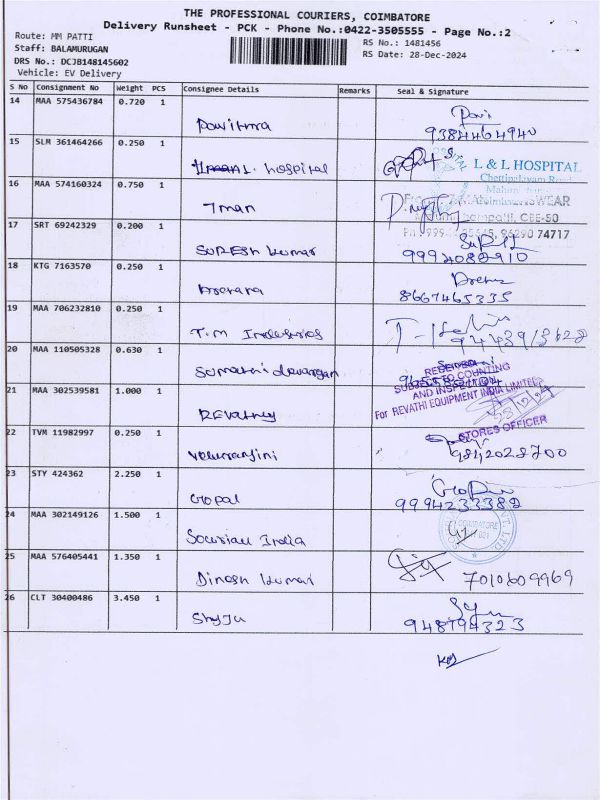 THE PROFESSIONAL COURIERS, COIMBATORE
Delivery Runsheet - PCK - Phone No.:0422-3505555 - Page No.:2
Route: MM PATTI
RS No.: 1481456
Staff: BALAMURUGAN
RS Date: 28-Dec-2024
DRS No.: DCJB148145602
Vehicle: EV Delivery
S No Consignment No Weight PCS Consignee Details Remarks Seal & Signature
14 MAA 575436784 0.720 1
Pavithra
9384464940
15 SLM 361464266 0.250 1
hospital
L & L HOSPITAL
Chettipalayam Road
16 MAA 574160324 0.750 1
7man
CBE-50
17 SRT 69242329 0.200 1
74717
Suresh kumar
18 KTG 7163570 0.250 1
8667465335
19 MAA 706232810 0.250 1
T.M Industries
20 MAA 110505328 0.630 1
Sumathi
RECEIVED
SUBJECT TO COUNTING
AND INSPECTION
For REVATHI EQUIPMENT INDIA LIMITED
21 MAA 302539581 1.000 1
Revathy
STORES OFFICER
22 TVM 11982997 0.250 1
9842028700
23 STY 424362 2.250 1
Gopal
9994233382
24 MAA 302149126 1.500 1
COIMBATORE
India
25 MAA 576405441 1.350 1
Dinesh kumar
7010609969
26 CLT 30400486 3.450 1
Shyju